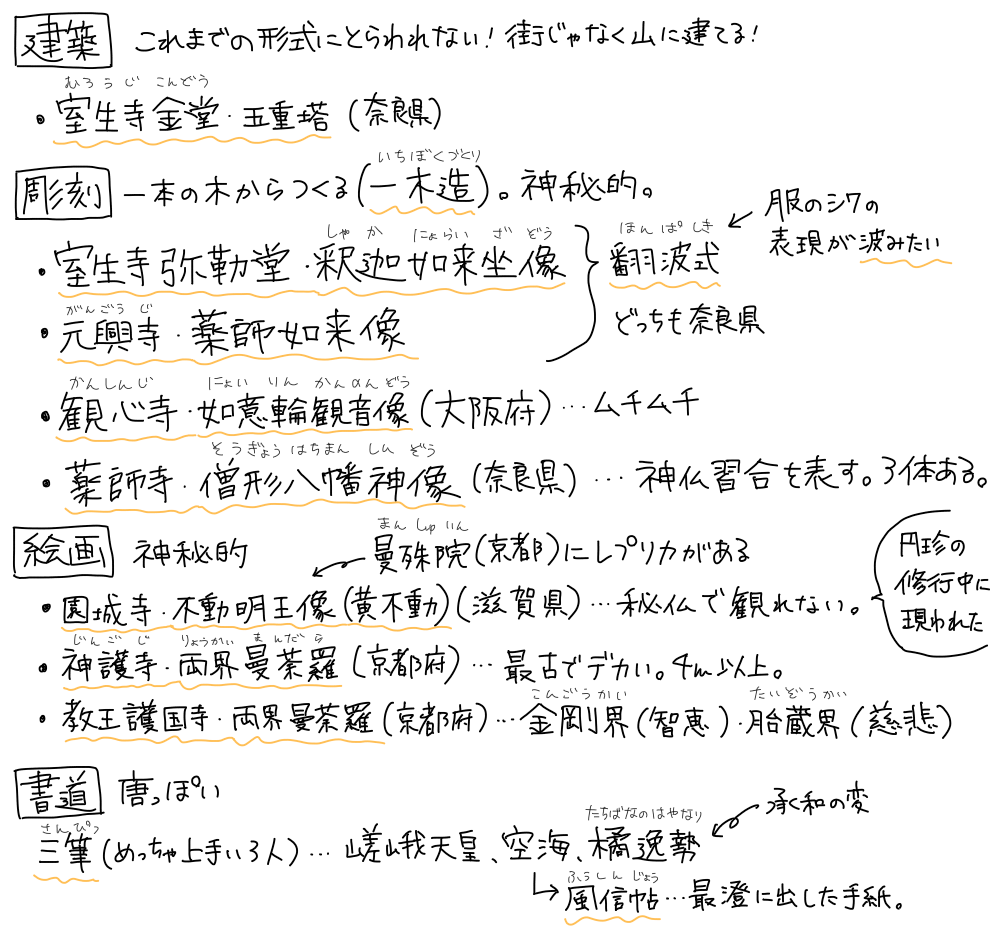 建築 これまでの形式にとらわれない！街じゃなく山に建てる！
むろうじ こんどう
・室生寺金堂・五重塔（奈良県）
いちぼくづくり
彫刻 一本の木からつくる（一木造）。神秘的。
服のシワの
表現が波みたい
しゃか にょらい ざ ぞう
ほんぱ しき
・室生寺弥勒堂・釈迦如来坐像
翻波式
がんごう じ
・元興寺・薬師如来像
どっちも奈良県
かんしんじ にょい りん かんのんぞう
・観心寺・如意輪観音像（大阪府）…ムチムチ
そうぎょう はちまん しん ぞう
・薬師寺・僧形八幡神像（奈良県）…神仏習合を表す。3体ある。
絵画 神秘的
まん しゅ いん
曼殊院（京都）にレプリカがある
円珍の
修行中に
現われた
・園城寺・不動明王像（黄不動）（滋賀県）…秘仏で観れない。
じんご じ りょうかい まんだら
・神護寺・両界曼荼羅（京都府）…最古でデカい。4m以上。
こんごうかい たいぞうかい
・教王護国寺・両界曼荼羅（京都府）…金剛界（智恵）・胎蔵界（慈悲）
書道 唐っぽい
さんぴつ
たちばなのはやなり
承和の変
三筆（めっちゃ上手い3人）…嵯峨天皇、空海、橘逸勢
ふうしん じょう
風信帖…最澄に出した手紙。